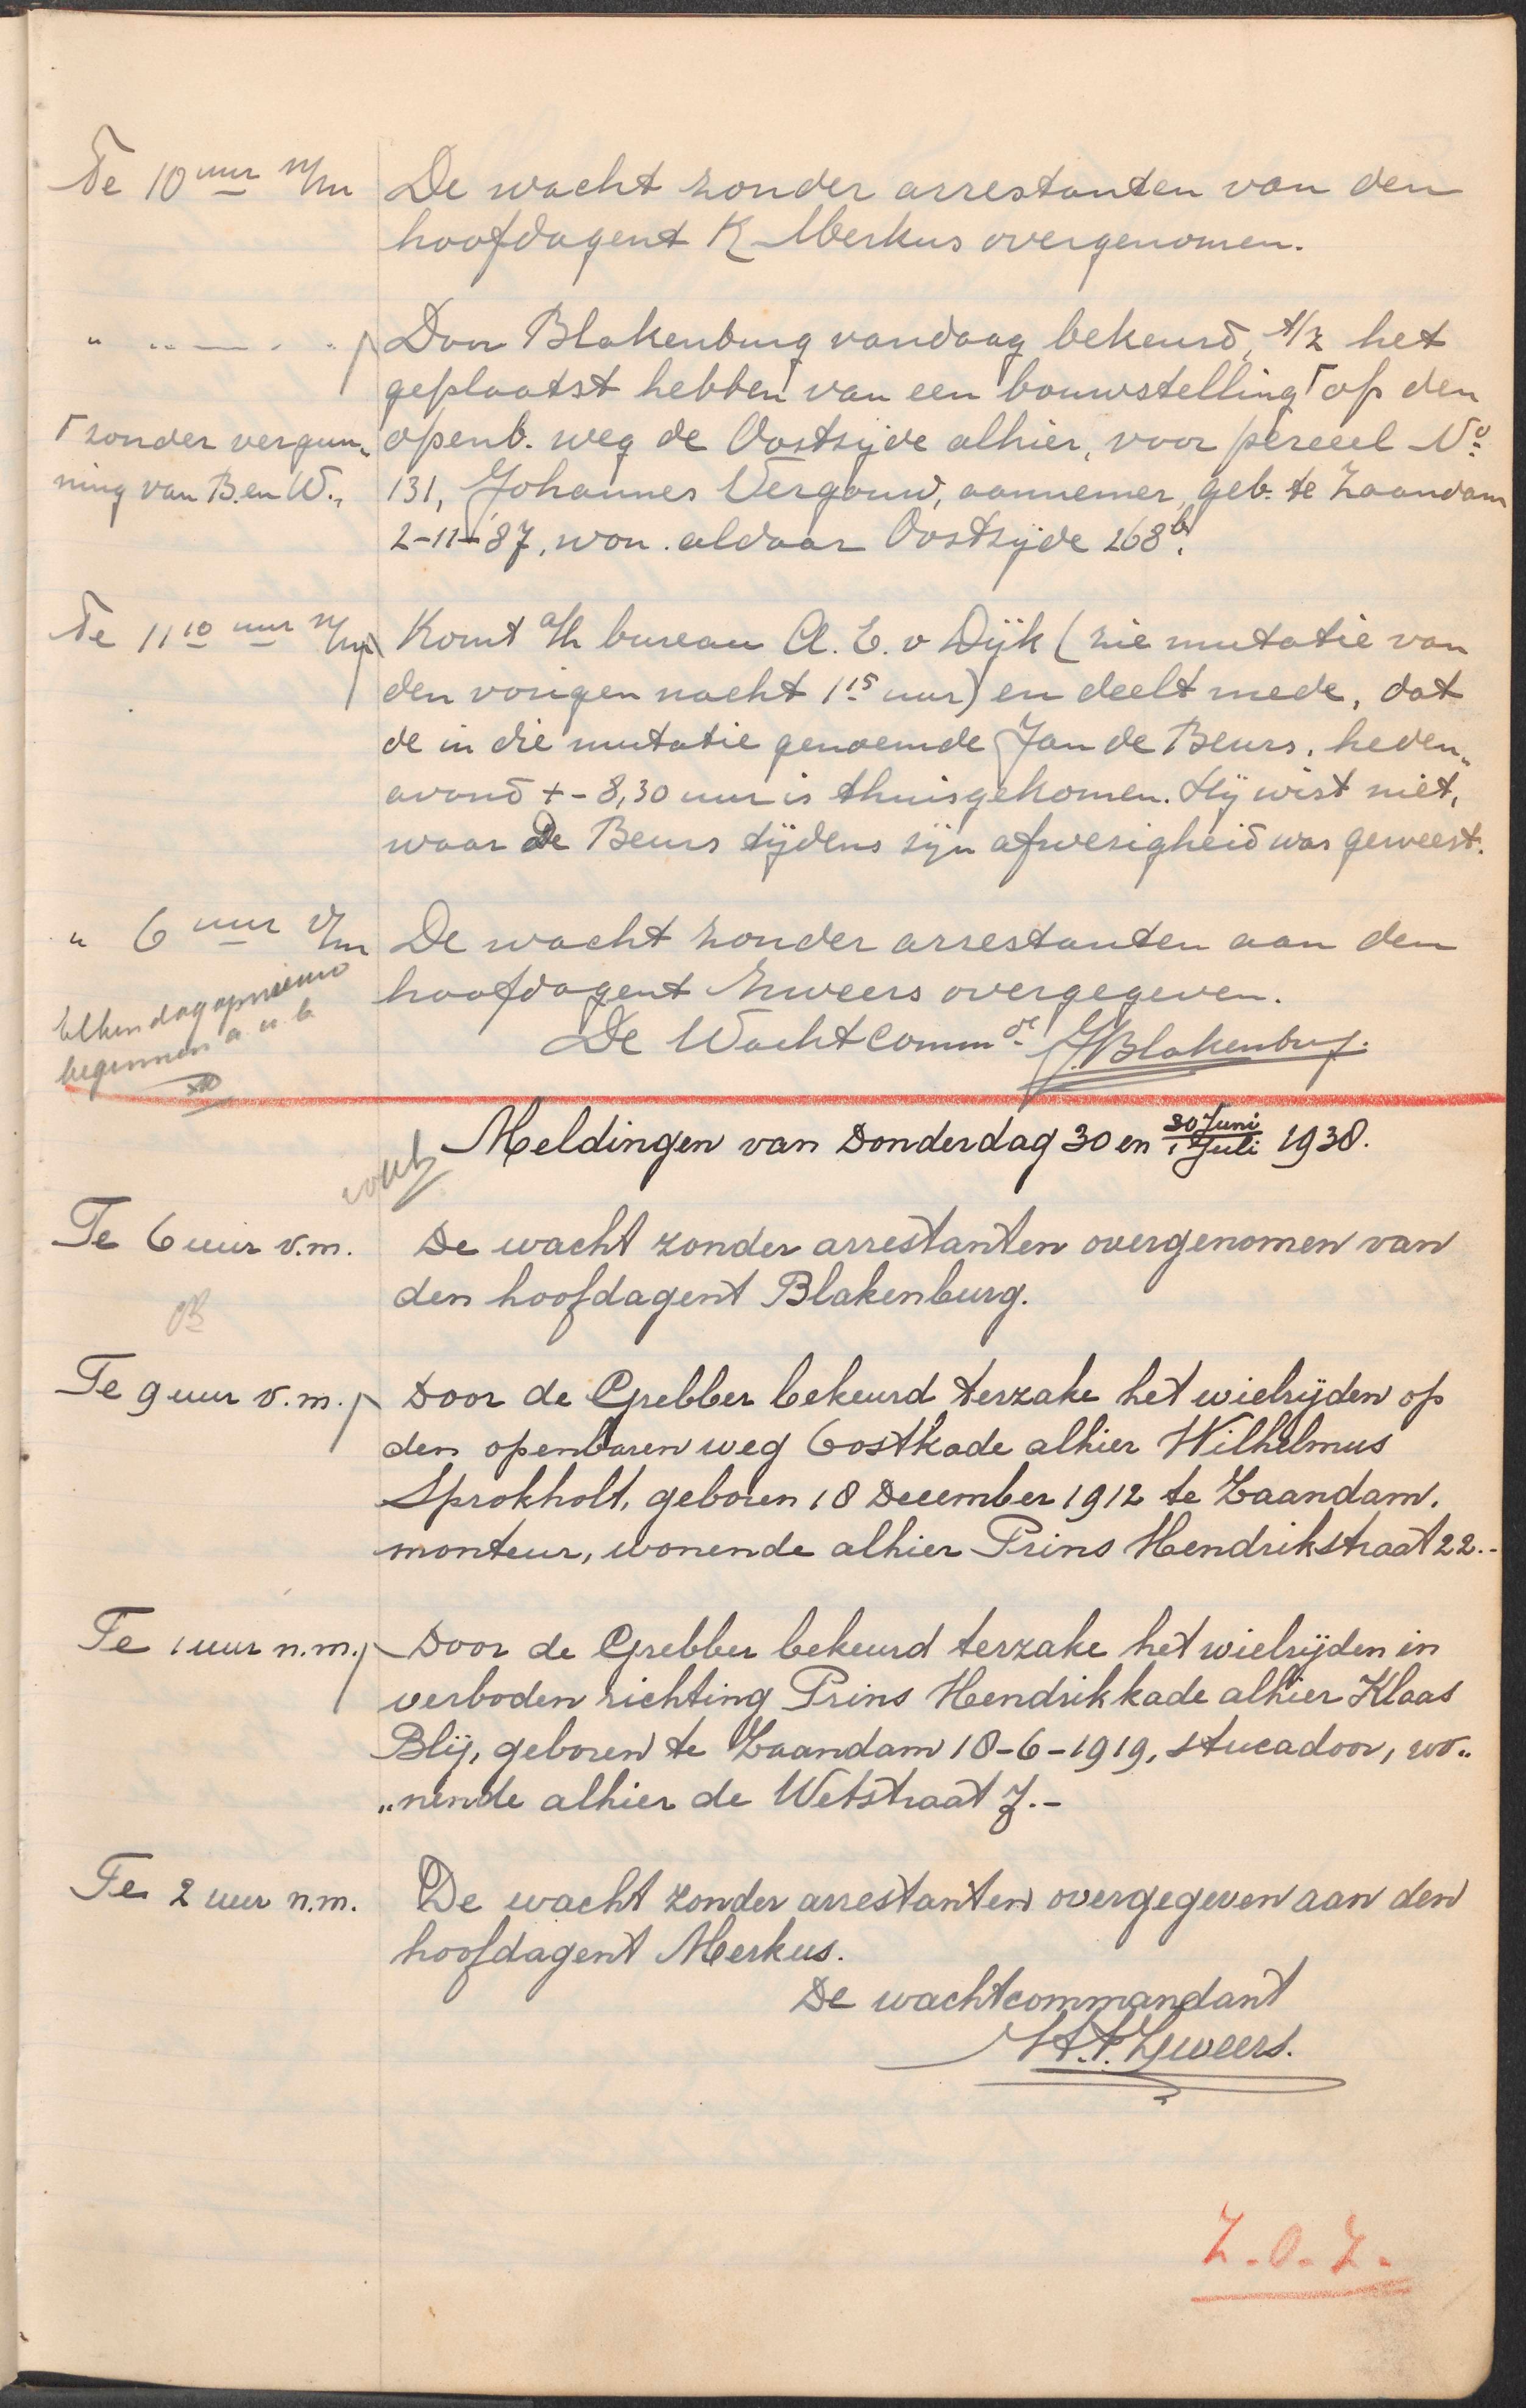 Te 10 uur n/m De wacht zonder arrestanten van den
hoofdagent K Merkus overgenomen.
" " — " " Door Blakenburg vandaag bekeurd, t/z het
geplaatst hebben van een bouwstelling Γ op den
Γ zonder vergun„ openb. weg de Oostzijde alhier, voor perceel No
ning van B. en W., 131, Johannes Vergouw, aannemer, geb. te Zaandam
2-11-'87, won. aldaar Oostzijde 268b.
Te 11 10 uur n/m Komt a/h bureau A. E. v Dijk (zie mutatie van
den vorigen nacht 1 15 uur) en deelt mede, dat
de in die mutatie genoemde Jan de Beurs, heden„
avond +- 8,30 uur is thuisgekomen. Hij wist niet,
waar De Beurs tijdens zijn afwezigheid was geweest.
" 6 uur v/m De wacht zonder arrestanten aan den
hoofdagent Zweers overgegeven.
Elken dag opnieuw
beginnen a.u.b
De Wachtcommdt JBlakenburg.
Meldingen van Donderdag 30 en 30 Juni / 1 Juli 1938.
Te 6 uur v.m. De wacht zonder arrestanten overgenomen van
den hoofdagent Blakenburg.
Te 9 uur v.m. Door de Grebber bekeurd terzake het wielrijden op
den openbaren weg Oostkade alhier Wilhelmus
Sprokholt, geboren 18 December 1912 te Zaandam,
monteur, wonende alhier Prins Hendrikstraat 22.-
Te 1 uur n.m. Door de Grebber bekeurd terzake het wielrijden in
verboden richting Prins Hendrikkade alhier Klaas
Blij, geboren te Zaandam 18-6-1919, stucadoor, wo„
„nende alhier de Wetstraat 7.-
Te 2 uur n.m. De wacht zonder arrestanten overgegeven aan den
hoofdagent Merkus.
De wachtcommandant
H.A. Zweers.
Z.O.Z.